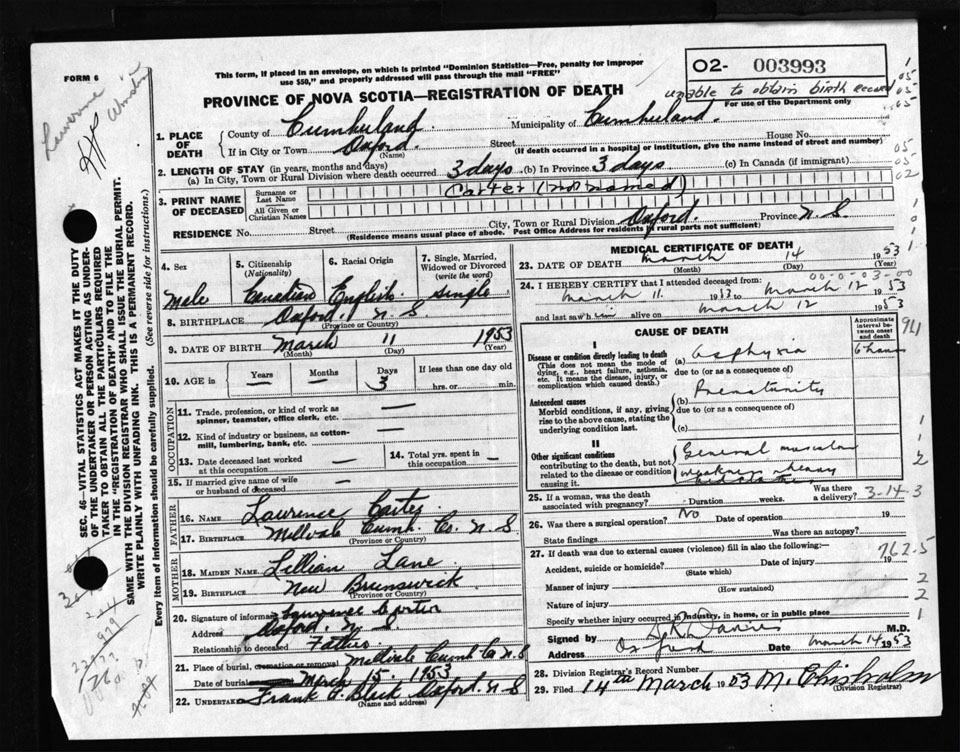 FORM 6
This form, if placed in an envelope, on which is printed "Dominion Statistics—Free, penalty for improper
use $50," and properly addressed will pass through the mail "FREE"
O2- 003993
unable to obtain birth record
For use of the Department only
PROVINCE OF NOVA SCOTIA—REGISTRATION OF DEATH
Lawrence
1. PLACE OF DEATH
County of Cumberland Municipality of Cumberland.
If in City or Town Oxford. Street House No.
(Name) (If death occurred in a hospital or institution, give the name instead of street and number)
2. LENGTH OF STAY (in years, months and days)
(a) In City, Town or Rural Division where death occurred 3 days (b) In Province 3 days (c) In Canada (if immigrant)
3. PRINT NAME OF DECEASED
Surname or Last Name Carter (not named)
All Given or Christian Names
RESIDENCE No. Street City, Town or Rural Division Oxford. Province N.S.
(Residence means usual place of abode. Post Office Address for residents in rural parts not sufficient)
SEC. 46—VITAL STATISTICS ACT MAKES IT THE DUTY
OF THE UNDERTAKER OR PERSON ACTING AS UNDER-
TAKER TO OBTAIN ALL THE PARTICULARS REQUIRED
IN THE "REGISTRATION OF DEATH" AND TO FILE THE
SAME WITH THE DIVISION REGISTRAR WHO SHALL ISSUE THE BURIAL PERMIT.
WRITE PLAINLY WITH UNFADING INK. THIS IS A PERMANENT RECORD.
Every item of information should be carefully supplied. (See reverse side for instructions.)
4. Sex
Male
5. Citizenship
(Nationality)
Canadian
6. Racial Origin
English
7. Single, Married,
Widowed or Divorced
(write the word)
Single
8. BIRTHPLACE Oxford. N.S.
(Province or Country)
9. DATE OF BIRTH March 11 1953
(Month) (Day) (Year)
10. AGE in Years — Months — Days 3
If less than one day old
hrs. or min.
OCCUPATION
11. Trade, profession, or kind of work as
spinner, teamster, office clerk, etc. —
12. Kind of industry or business, as cotton-
mill, lumbering, bank, etc. —
13. Date deceased last worked
at this occupation —
14. Total yrs. spent in
this occupation —
15. If married give name of wife
or husband of deceased
FATHER
16. Name Lawrence Carter
17. Birthplace Millvale Cumb. Co. N.S
(Province or Country)
MOTHER
18. MAIDEN NAME Lillian Lane
19. BIRTHPLACE New Brunswick
(Province or Country)
20. Signature of informant Lawrence Carter
Address Oxford, N.S
Relationship to deceased Father
21. Place of burial, cremation or removal Millvale Cumb Co N.S
Date of burial March 15. 1953
22. UNDERTAKER Frank Black Oxford. N.S
(Name and address)
MEDICAL CERTIFICATE OF DEATH
23. DATE OF DEATH March 14 1953
(Month) (Day) (Year)
00-0-03-00
24. I HEREBY CERTIFY that I attended deceased from:
March 11 1953 to March 12 1953
and last saw him alive on March 12 1953
CAUSE OF DEATH
Approximate interval between onset and death
I
Disease or condition directly leading to death
(This does not mean the mode of
dying, e.g., heart failure, asthenia,
etc. It means the disease, injury, or
complication which caused death.)
(a) Asphyxia 6 hours
due to (or as a consequence of)
Antecedent causes
Morbid conditions, if any, giving
rise to the above cause, stating the
underlying condition last.
(b) Prematurity
due to (or as a consequence of)
(c)
II
Other significant conditions
contributing to the death, but not
related to the disease or condition
causing it.
General muscular
weakness
25. If a woman, was the death
associated with pregnancy? Duration weeks. Was there
a delivery?
3-14-3
26. Was there a surgical operation? No Date of operation 19
State findings Was there an autopsy?
27. If death was due to external causes (violence) fill in also the following:
762.5
Accident, suicide or homicide? Date of injury 19
(State which)
Manner of injury
(How sustained)
Nature of injury
Specify whether injury occurred in industry, in home, or in public place
Signed by Davies M.D.
Address Oxford Date March 14 1953
28. Division Registrar's Record Number
29. Filed 14th March 1953 M. Chisholm
(Division Registrar)